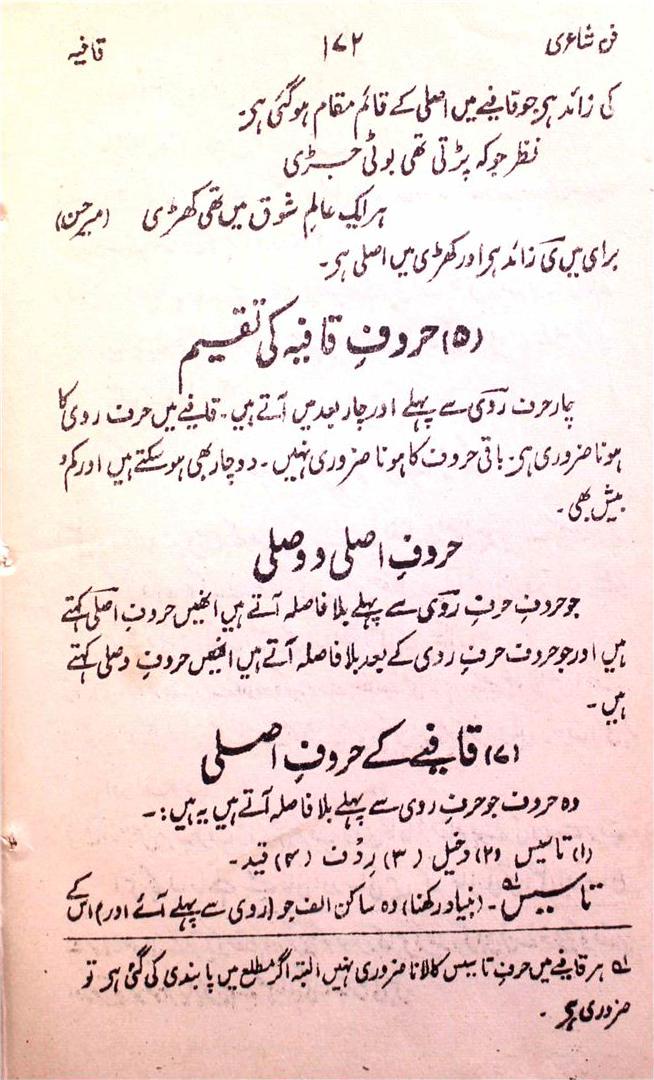 فنِ شاعری ۱۷۲ قافیہ
کی زائد ہر جو قافیے میں اصلی کے قائم مقام ہو گئی ہر۔
نظر جو کہ پڑتی تھی بوٹی جڑی
ہر ایک عالمِ شوق میں تھی کھڑی (میر حسن)
برای میں ی زائد ہر اور کھڑی میں اصلی ہر۔
(۵) حروفِ قافیہ کی تقسیم
چار حرف روی سے پہلے اور چار بعد میں آتے ہیں۔ قافیے میں حرف روی کا
ہونا ضروری ہر۔ باقی حروف کا ہونا ضروری نہیں۔ دو چار بھی ہو سکتے ہیں اور کم و
بیش بھی۔
حروفِ اصلی و وصلی
جو حروف حرفِ روی سے پہلے بلا فاصلہ آتے ہیں انھیں حروفِ اصلی کہتے
ہیں اور جو حروف حرفِ روی کے بعد بلا فاصلہ آتے ہیں انھیں حروفِ وصلی کہتے
ہیں۔
(۷) قافیے کے حروفِ اصلی
وہ حروف جو حرفِ روی سے پہلے بلا فاصلہ آتے ہیں یہ ہیں:۔
(۱) تاسیس (۲) دخیل (۳) رِدْف (۴) قید۔
تاسیس۱؎۔ (بنیاد رکھنا) وہ ساکن الف جو (روی سے پہلے آئے اور) اس کے
۱؎ ہر قافیے میں حرفِ تاسیس کا لانا ضروری نہیں البتہ اگر مطلع میں پابندی کی گئی ہر تو
ضروری ہر۔